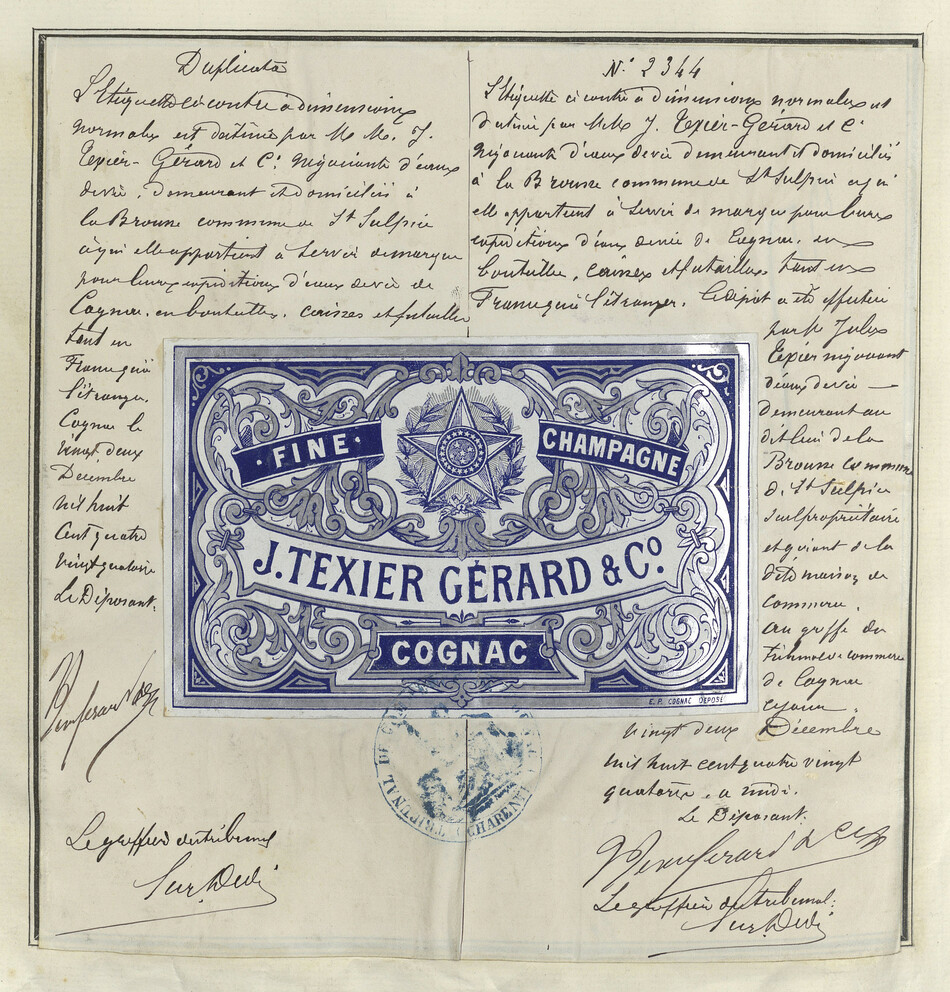 Duplicata
L'Etiquette ci contre à dimensions
normales est destinée par M. M. J.
Texier-Gérard et Cie. négociants d'eaux
de vie, demeurant et domiciliés à
la Brousse commune de St Sulpice
à qui elle appartient à servir de marque
pour leurs expéditions d'eaux de vie de
Cognac. en bouteilles, caisses et futailles
tant en
France qu'à
l'étranger.
Cognac le
vingt deux
Décembre
mil huit
cent quatre
vingt quatorze
Le Déposant.
Le greffier du tribunal
N° 2344
L'Etiquette ci contre à dimensions normales est
destinée par M.M. J. Texier-Gérard et Cie
négociants d'eaux de vie demeurant et domiciliés
à la Brousse commune de St Sulpice à qui
elle appartient à servir de marque pour leurs
expéditions d'eaux de vie de Cognac. en
bouteilles, caisses et futailles tant en
France qu'à l'étranger. Le dépôt a été effectué
par M. Jules
Texier négociant
d'eaux de vie
demeurant au
dit lieu de la
Brousse commune
de St Sulpice
seul propriétaire
et gérant de la
dite maison de
commerce.
au greffe du
Tribunal de commerce
de Cognac
ce jour.
vingt deux Décembre
mil huit cent quatre vingt
quatorze. a midi.
Le Déposant.
Le greffier du tribunal.
FINE CHAMPAGNE
J. TEXIER GÉRARD & Co.
COGNAC
E.P. COGNAC DÉPOSÉ
TRIBUNAL DE
CHARENTE